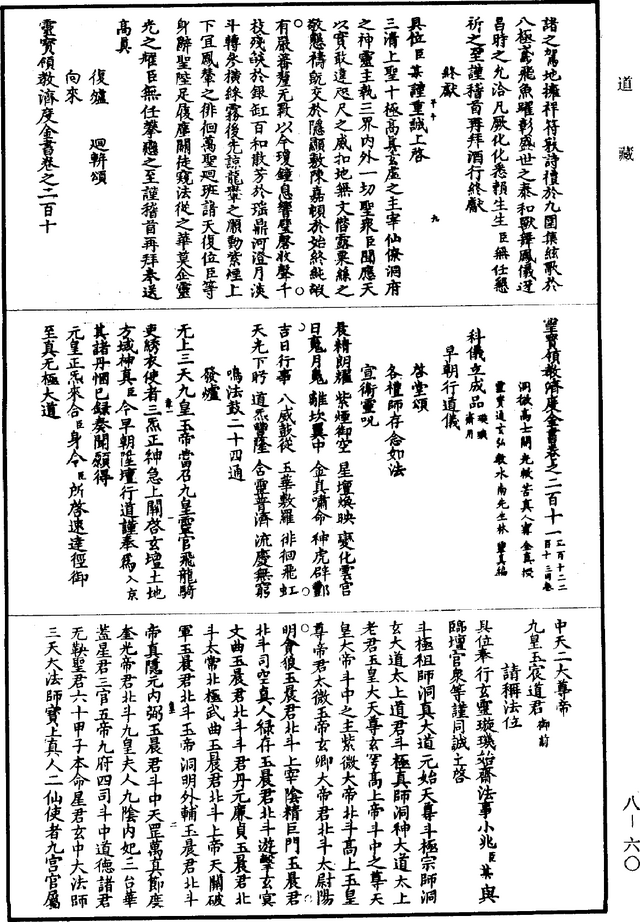 道藏
諸之駕地擁祥符歌詩禮於九圍集絃歌於
八極鳶飛魚躍彰盛世之泰和獸舞鳳儀逕
昌時之允洽凡厥化化悉賴生生臣無任懇
祈之至謹稽首再拜酒行終獻
終獻
具位臣某謹重誠上啓
三清上聖十極高真玄虛之主宰仙僚洞府
之神靈主執三界內外一切聖衆臣聞應天
以實敢違咫尺之威扣地無文偕露粟絲之
敬懇禱既交於隱顯敷陳嘉頓於始終純嘏
有嚴香馥無斁以今瓊鐘息響璧磬收聲千
枝殘燄於銀缸百和散芳於瑞鼎河澄月淡
斗轉朱橫綵霧後先諒龍轡之願動紫煙上
下宜鳳輦之徘徊萬聖迴班諸天復位臣等
身辭聖陛足展塵關徒窺法從之華莫企靈
光之耀臣無任攀戀之至謹稽首再拜奉送
高真
復爐　迴軿頌
向來
靈寶領教濟度金書卷之二百十
靈寶領教濟度金書卷之二百十一
洞微高士開光救苦真人甯全真授
靈寶通玄弘教水南先生林靈真編
科儀立成品 璇璣齋用
早朝行道儀
啓堂頌
各禮師存念如法
宣衞靈呪
晨精朗耀　紫煙御空　星壇煥映　變化雲宮
日鬼月魄　離坎翼中　金真肅命　神虎辟酆
吉日行事　八威鼓從　五華敷羅　徘徊飛虹
天光下眄　道炁豐隆　含靈普濟　流慶無窮
鳴法鼓二十四通
發爐
无上三天九皇玉帝當召九皇靈官飛龍騎
吏繡衣使者三炁正神急上關啓玄壇土地
方域神真臣今早朝陞壇行道謹奉爲入京
其諸丹悃已錄奏聞願得
元皇正炁來合臣身令臣所啓速達徑御
至真无極大道
中天二大尊帝
九皇玉宸道君御前
請稱法位
具位奉行玄靈璇璣始齋法事小兆臣某與
臨壇官衆等謹同誠上啓
斗極祖師洞真大道元始天尊斗極宗師洞
玄大道太上道君斗極真師洞神大道太上
老君玉皇大天尊玄穹高上帝斗中之尊天
皇大帝斗中之主紫微大帝北斗高上玉皇
尊帝君太微玉帝玄卿大帝君北斗太尉陽
明貪狼玉晨君北斗上宰陰精巨門玉晨君
北斗司空真人祿存玉晨君北斗遊擊玄冥
文曲玉晨君北斗斗君丹元廉貞玉晨君北
斗太常北極武曲玉晨君北斗上帝天關破
軍玉晨君北斗玉帝洞明外輔玉晨君北斗
帝真隱元內弼玉晨君斗中天罡萬真節度
奎光帝君北斗九皇夫人九陰內妃三台華
蓋星君三官五帝九府四司斗中道德諸君
无鞅聖君六十甲子本命星君玄中大法師
三天大法師寶上真人二仙使者九宮官屬
八—六〇